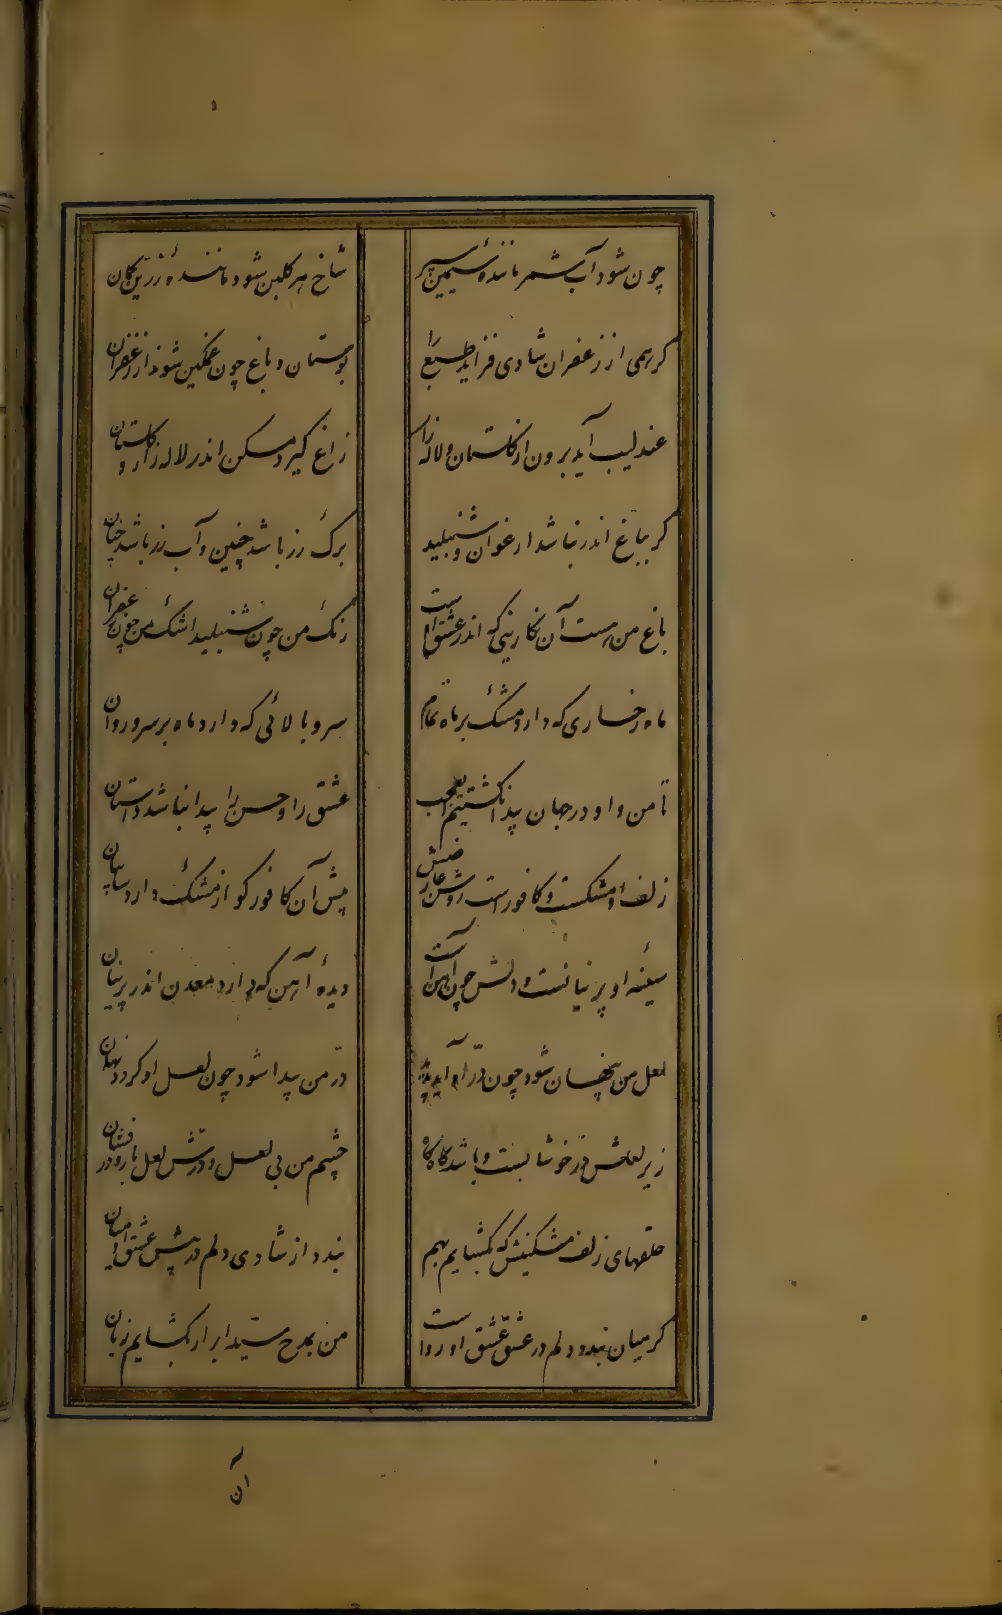 چون شود آب شمر ماننده سیمین سپر
شاخ هر گلبن شود ماننده زرین کمان
کر همی از زعفران شادی فزاید طبع را
بوستان و باغ چون غمگین شوند از زعفران
عندلیب آید برون از گلستان و لاله زار
زاغ گیرد مسکن اندر لاله زار و گلستان
کر بباغ اندر نباشد ارغوان و شنبلید
برگ رز باشد چنین و آب رز باشد چنان
باغ من هست آن نگارینی که اندر عشق او است
رنگ من چون شنبلید اشک من چون
ماه رخساری که دارد مشک بر ماه تمام
سرو بالائی که دارد ماه بر سرو روان
تا من و او در جهان پیدا نکشتیم
عشق را و حسن را پیدا نباشد داستان
زلف او مشکست و کافور است روشن عارضش
پیش آن کافور کو از مشک دارد سایبان
سینه او پرنیانست و دلش چون آهن است
دیده آهن که دارد معدن اندر پرنیان
لعل من پنهان شود چون در او آید پدید
در من پیدا شود چون لعل او کردد نهان
زیر لعلش در خوشابست و باشد گاه گاه
چشم من بی لعل و درش لعل بار و در فشان
حلقهای زلف مشکینش که بگشایم بهم
بندد از شادی دلم در پیش عشق او میان
کر میان بندد دلم در عشق عشق او روا است
من بمدح سید ابرار بگشایم زبان
آن